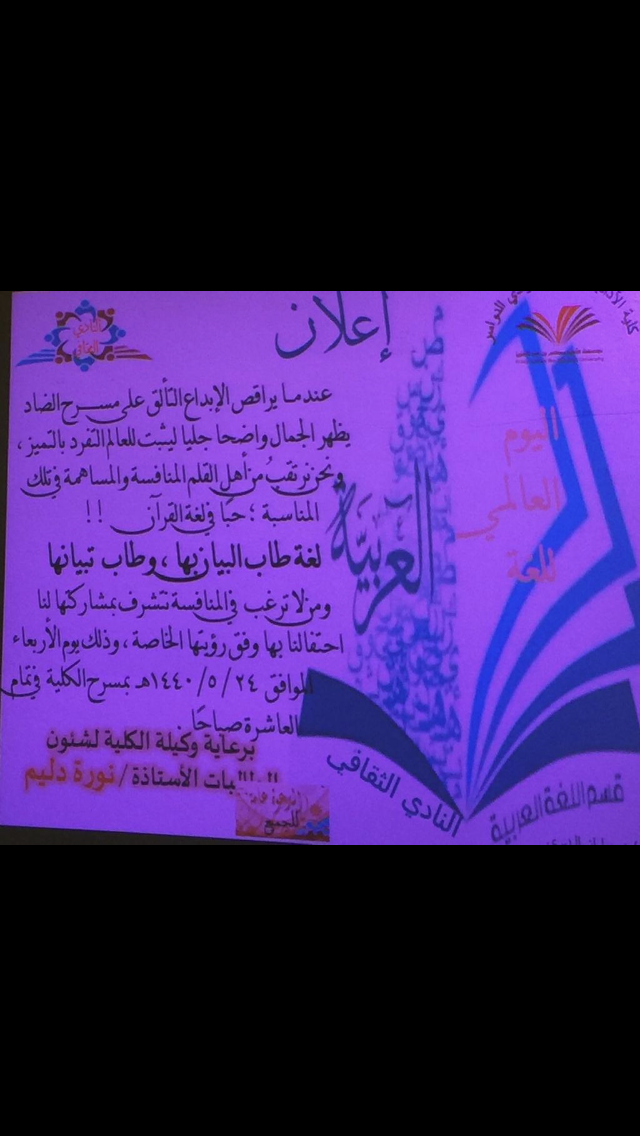 إعلان
النادي
الثقافي
عندما يراقص الإبداع التألق على مسرح الضاد
يظهر الجمال واضحا جليا ليثبت للعالم التفرد بالتميز ،
ونحن نرتقب من أهل القلم المنافسة والمساهمة في تلك
المناسبة ؛ حبًا في لغة القرآن !!
لغة طاب البيان بها ، وطاب تبيانها
ومن لا ترغب في المنافسة نتشرف بمشاركتها لنا
احتفالنا بها وفق رؤيتها الخاصة ، وذلك يوم الأربعاء
الموافق ٢٤ / ٥ / ١٤٤٠هـ بمسرح الكلية في تمام
العاشرة صباحًا
برعاية وكيلة الكلية لشئون
الطالبات الأستاذة / نورة دليم
للجميع
اليوم
العالمي
للغة
العربيّة
النادي الثقافي
قسم اللغة العربية